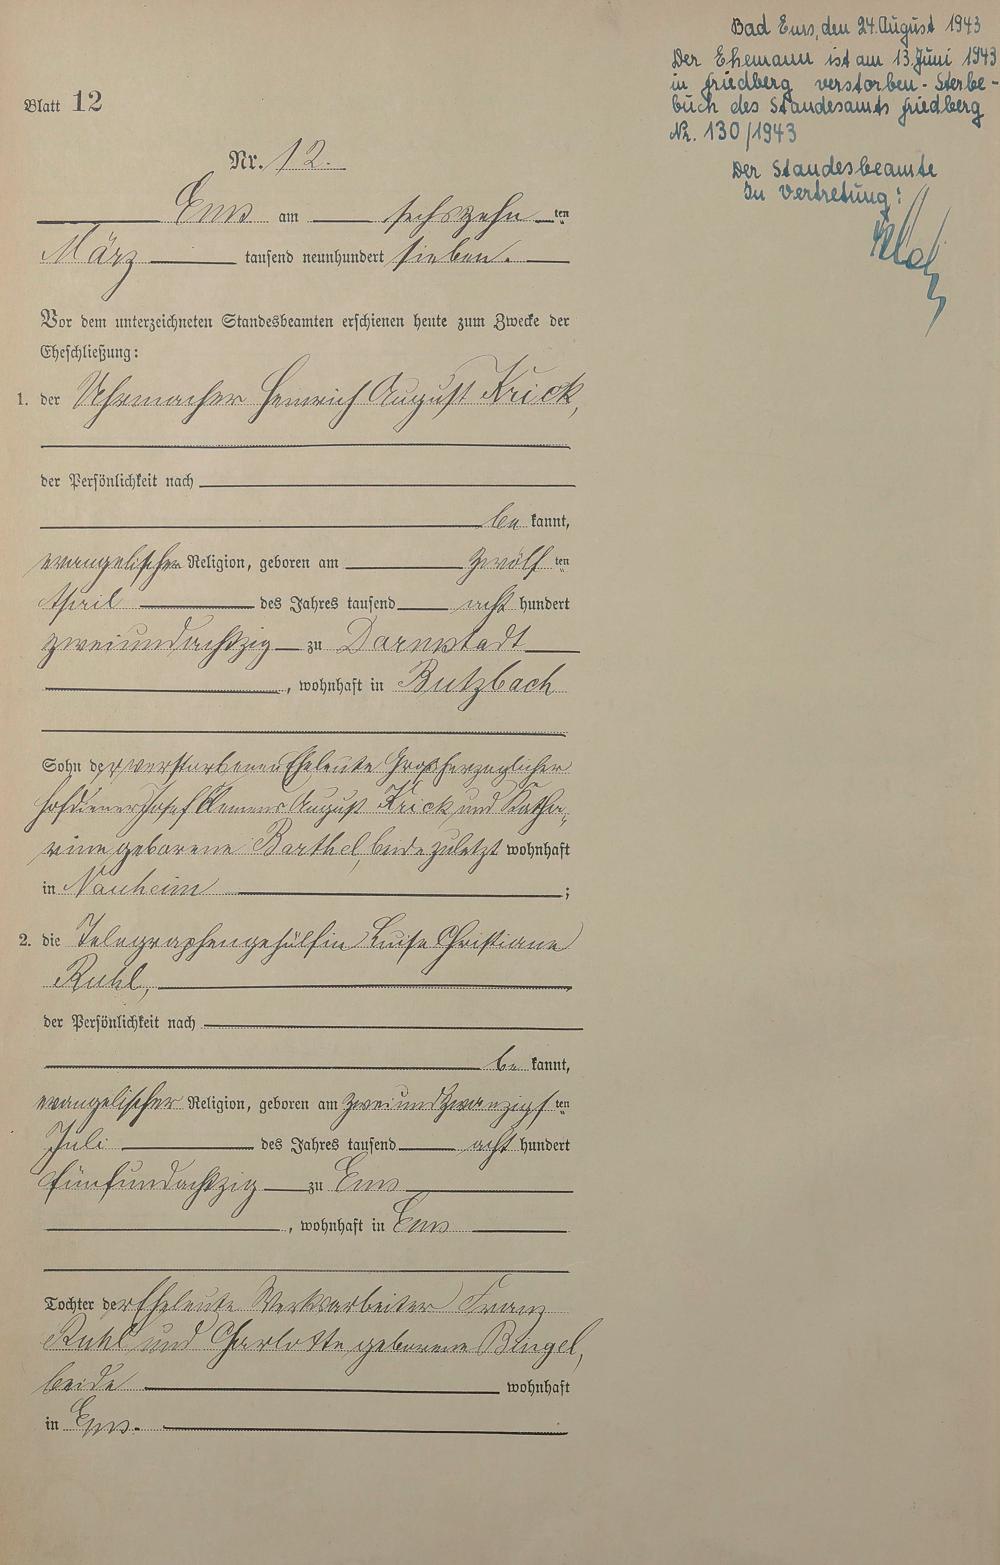 Bad Ems, den 24. August 1943
Der Ehemann ist am 13. Juni 1943
in Friedberg verstorben - Sterbe-
buch des Standesamts Friedberg
Nr. 130/1943
Der Standesbeamte
In Vertretung:
Blatt 12
Nr. 12.
Ems am sechszehn ten
März tausend neunhundert sieben.
Vor dem unterzeichneten Standesbeamten erschienen heute zum Zwecke der
Eheschließung:
1. der Uhrmacher Heinrich August Krick,
der Persönlichkeit nach
be kannt,
evangelischer Religion, geboren am zwölf ten
April des Jahres tausend acht hundert
zweiundachtzig zu Darmstadt
, wohnhaft in Butzbach
Sohn der verstorbenen Eheleute Großherzoglicher
Hofdiener Josef Klemens August Krick und Katha-
rine geborene Barthel, beide zuletzt wohnhaft
in Nauheim ;
2. die Telegraphengehülfin Luise Christiane
Ruhl,
der Persönlichkeit nach
be kannt,
evangelischer Religion, geboren am zweiundzwanzigs ten
Juli des Jahres tausend acht hundert
fünfundachtzig zu Ems
, wohnhaft in Ems
Tochter der Eheleute Werksarbeiter Franz
Ruhl und Charlotte geborene Bingel,
beide wohnhaft
in Ems.